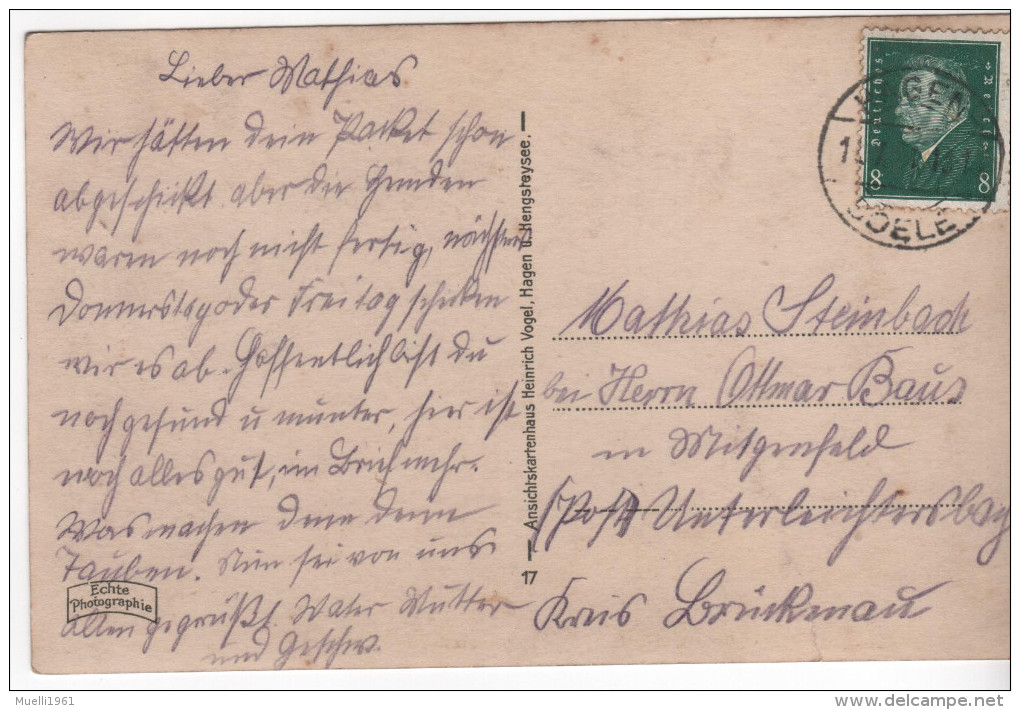 Lieber Mathias
Wir hätten dein Packet schon
abgeschickt aber die Hemden
waren noch nicht fertig, nächsten
Donnerstag oder Freitag schicken
wir es ab. Hoffentlich bist du
noch gesund u munter, hier ist
noch alles gut, im Brief mehr.
Was machen denn deine
Tauben. Nun sei von uns
allen gegrüßt. Vater Mutter
und Geschw.
Echte
Photographie
Ansichtskartenhaus Heinrich Vogel, Hagen u. Hengsteysee.
17
Deutsches Reich
8 8
HAGEN
BOELE
Mathias Steinbach
bei Herrn Ottmar Baus
in Mitgenfeld
(Post Unterleichtersbach
Kreis Brückenau
Muelli1961
www.delcampe.net